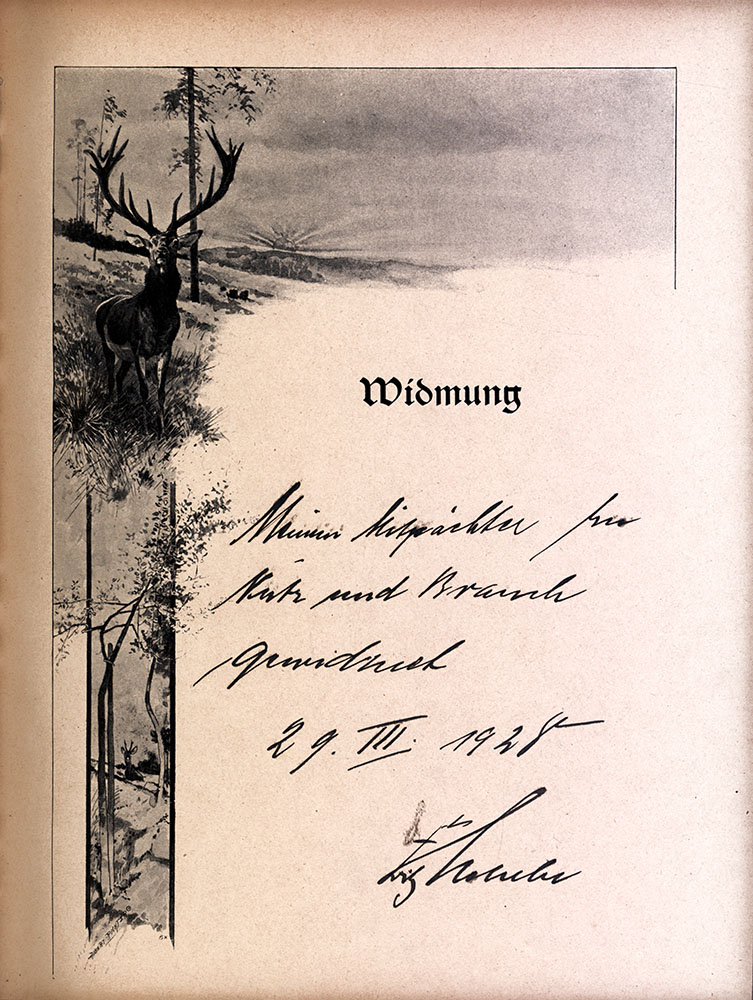 Widmung
Meinem Mitpächter zu
Nutz und Brauch
gewidmet
29. III. 1928
Fritz